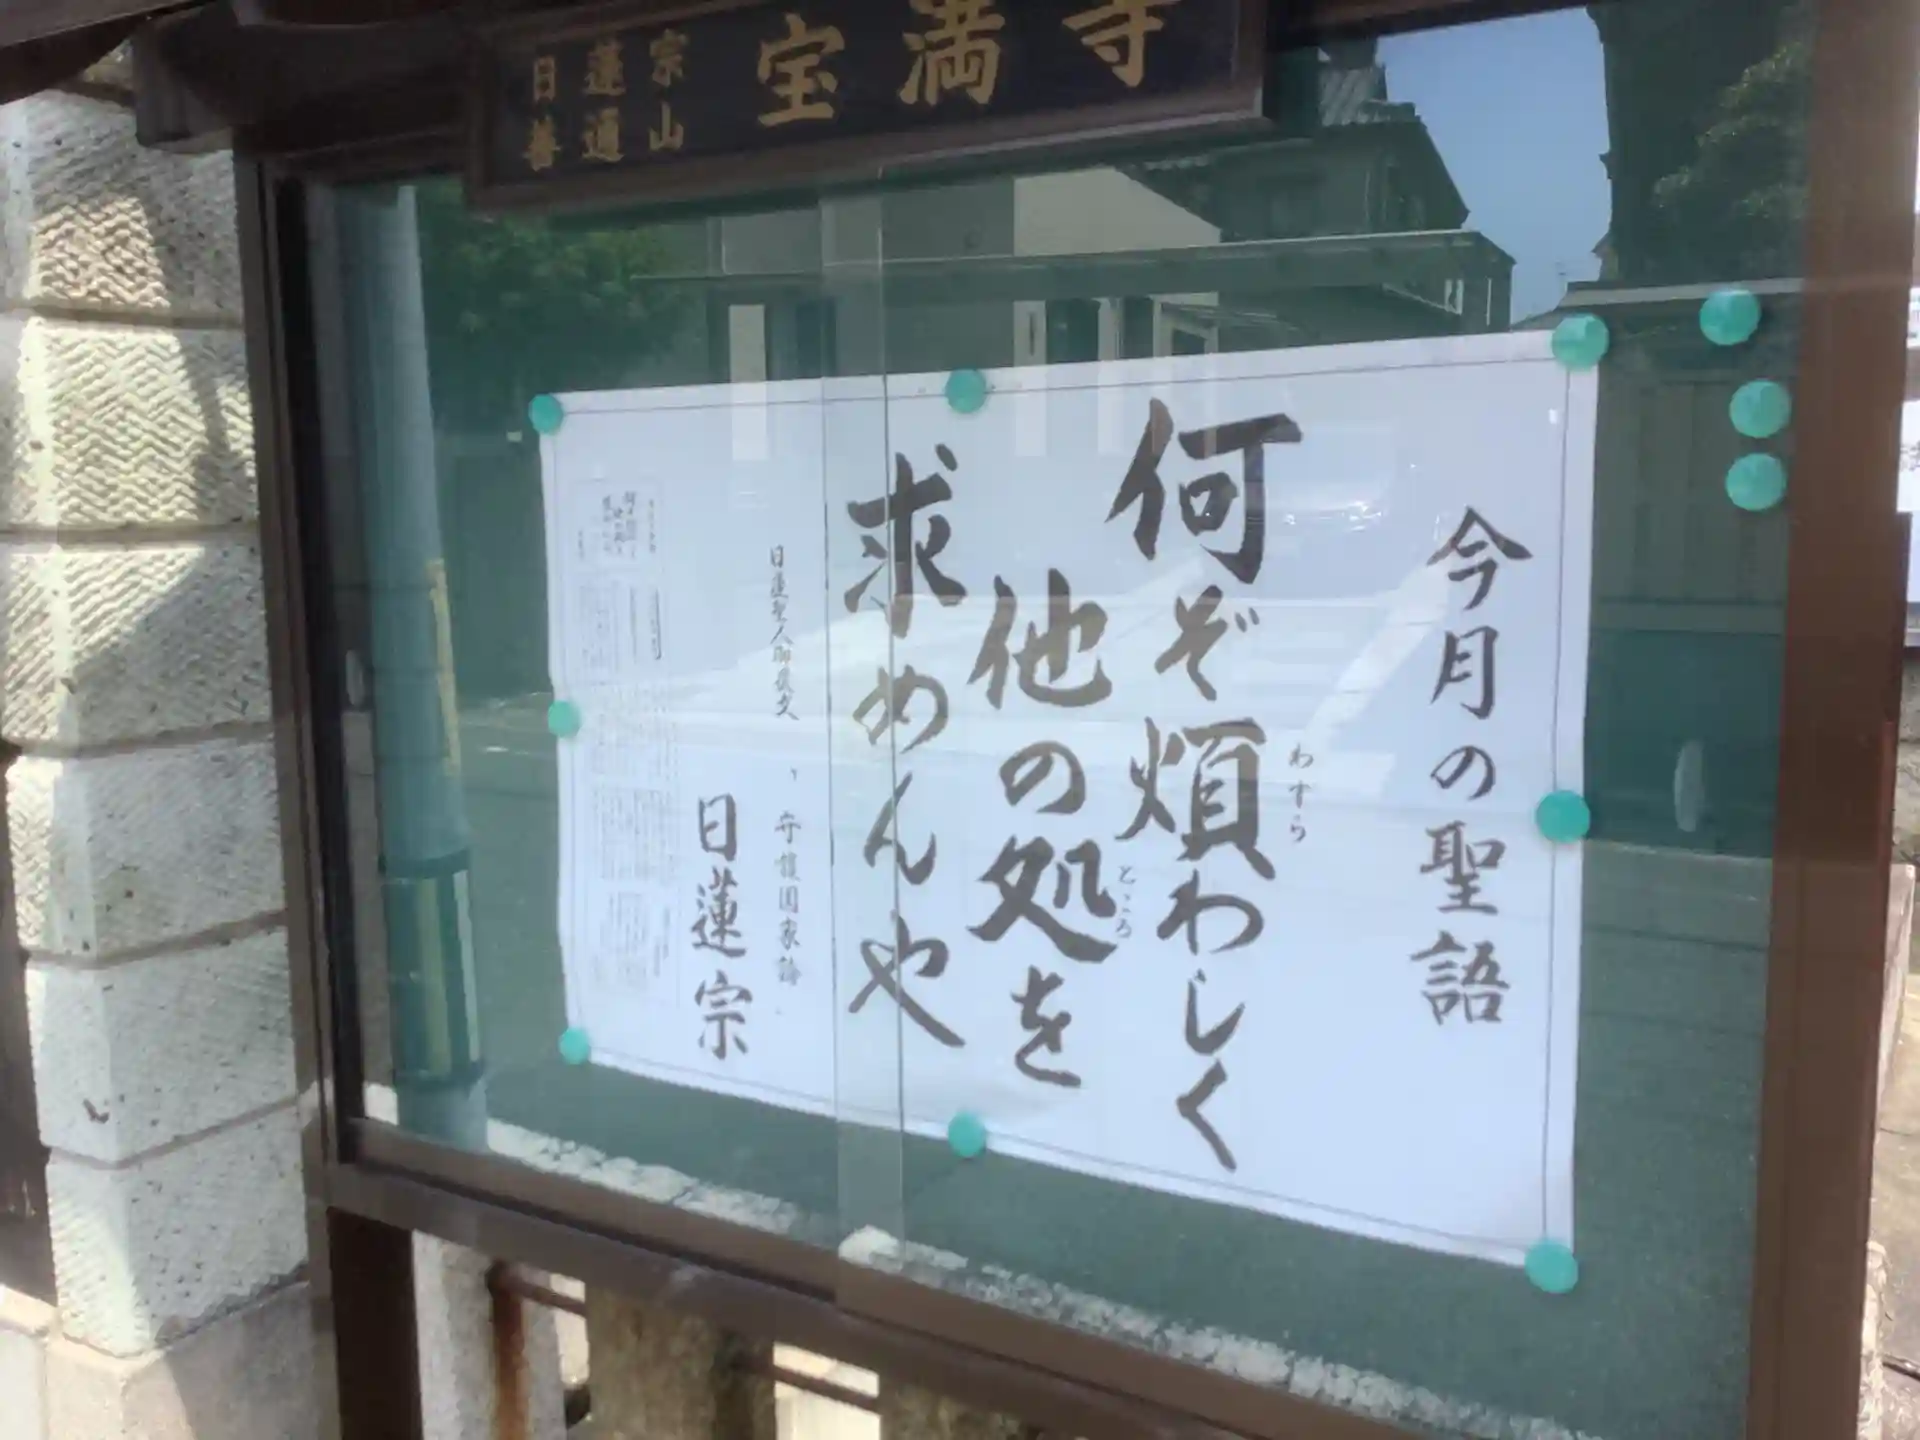 日蓮宗
普通山
宝満寺
今月の聖語
何ぞ煩わしく
わずら
他の処を
ところ
求めんや
日蓮聖人御遺文
守護国家論
日蓮宗